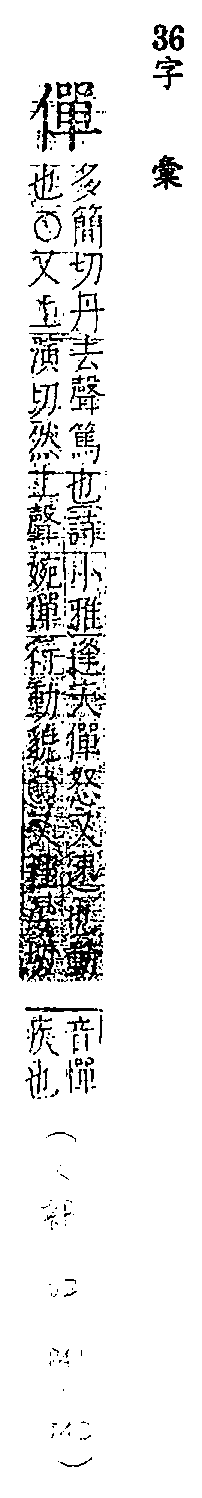 36字彙
僤
多簡切丹去聲篤也詩小雅逢天僤怒又速也動
也○又上演切然上聲婉僤行動貌○又
音憚
疾也